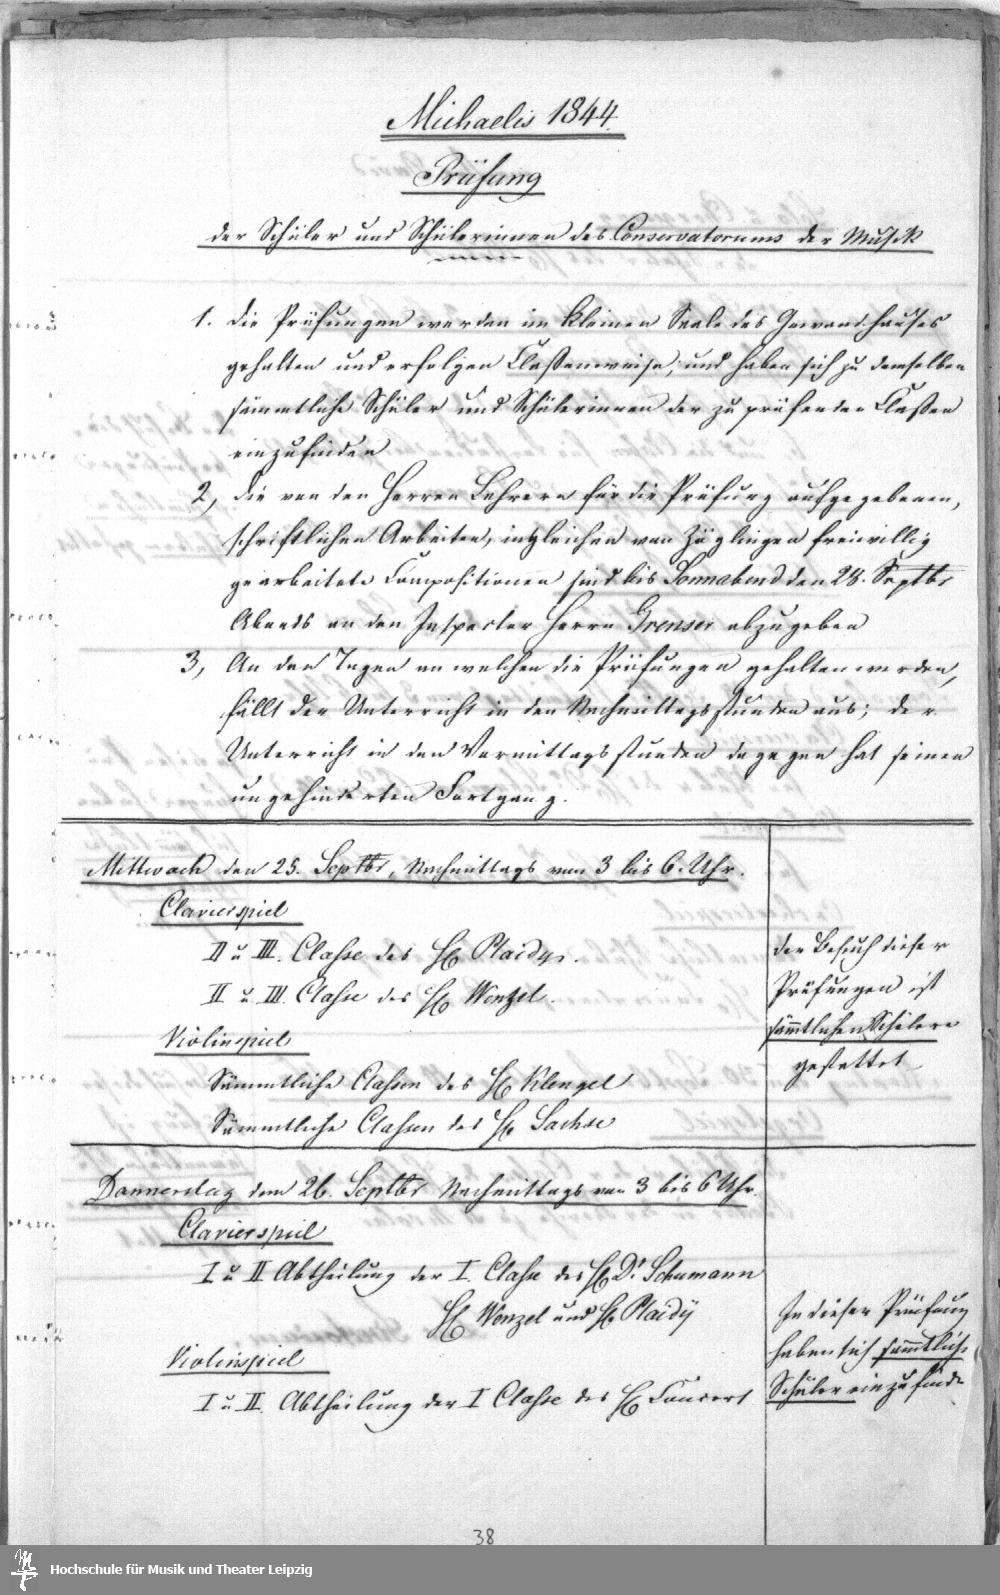 Michaelis 1844.
Prüfung
der Schüler und Schülerinnen des Conservatoriums der Musik
1. Die Prüfungen werden im kleinen Saale des Gewandhauses
gehalten und erfolgen Classenweise, und haben sich zu denselben
sämmtliche Schüler und Schülerinnen der zu prüfenden Classen
einzufinden
2, Die von den Herren Lehrern für die Prüfung aufgegebenen,
schriftlichen Arbeiten, ingleichen von Zöglingen freiwillig
gearbeitete Compositionen sind bis Sonnabend den 28. Septbr
Abends an den Inspector Herrn Grenser abzugeben
3, An den Tagen an welchen die Prüfungen gehalten werden,
fällt der Unterricht in den Nachmittagsstunden aus; der
Unterricht in den Vormittagsstunden dagegen hat seinen
ungehinderten Fortgang.
Mittwoch den 25. Septbr, Nachmittags von 3 bis 6. Uhr.
Clavierspiel
II u III. Classe des H Plaidy.
II u. III. Classe des H Wenzel.
Violinspiel
Sämmtliche Classen des H Klengel
Sämmtliche Classen des H Sachse
Der Besuch dieser
Prüfungen ist
sämtlichen Schülern
gestattet
Donnerstag den 26. Septbr Nachmittags von 3 bis 6 Uhr.
Clavierspiel
I u II Abtheilung der I. Classe des H Dr Schumann
H Wenzel und H Plaidy
Violinspiel
I u II. Abtheilung der I Classe des H Concert
In dieser Prüfung
haben sich sämmtlich
Schüler einzufinde
38
Hochschule für Musik und Theater Leipzig